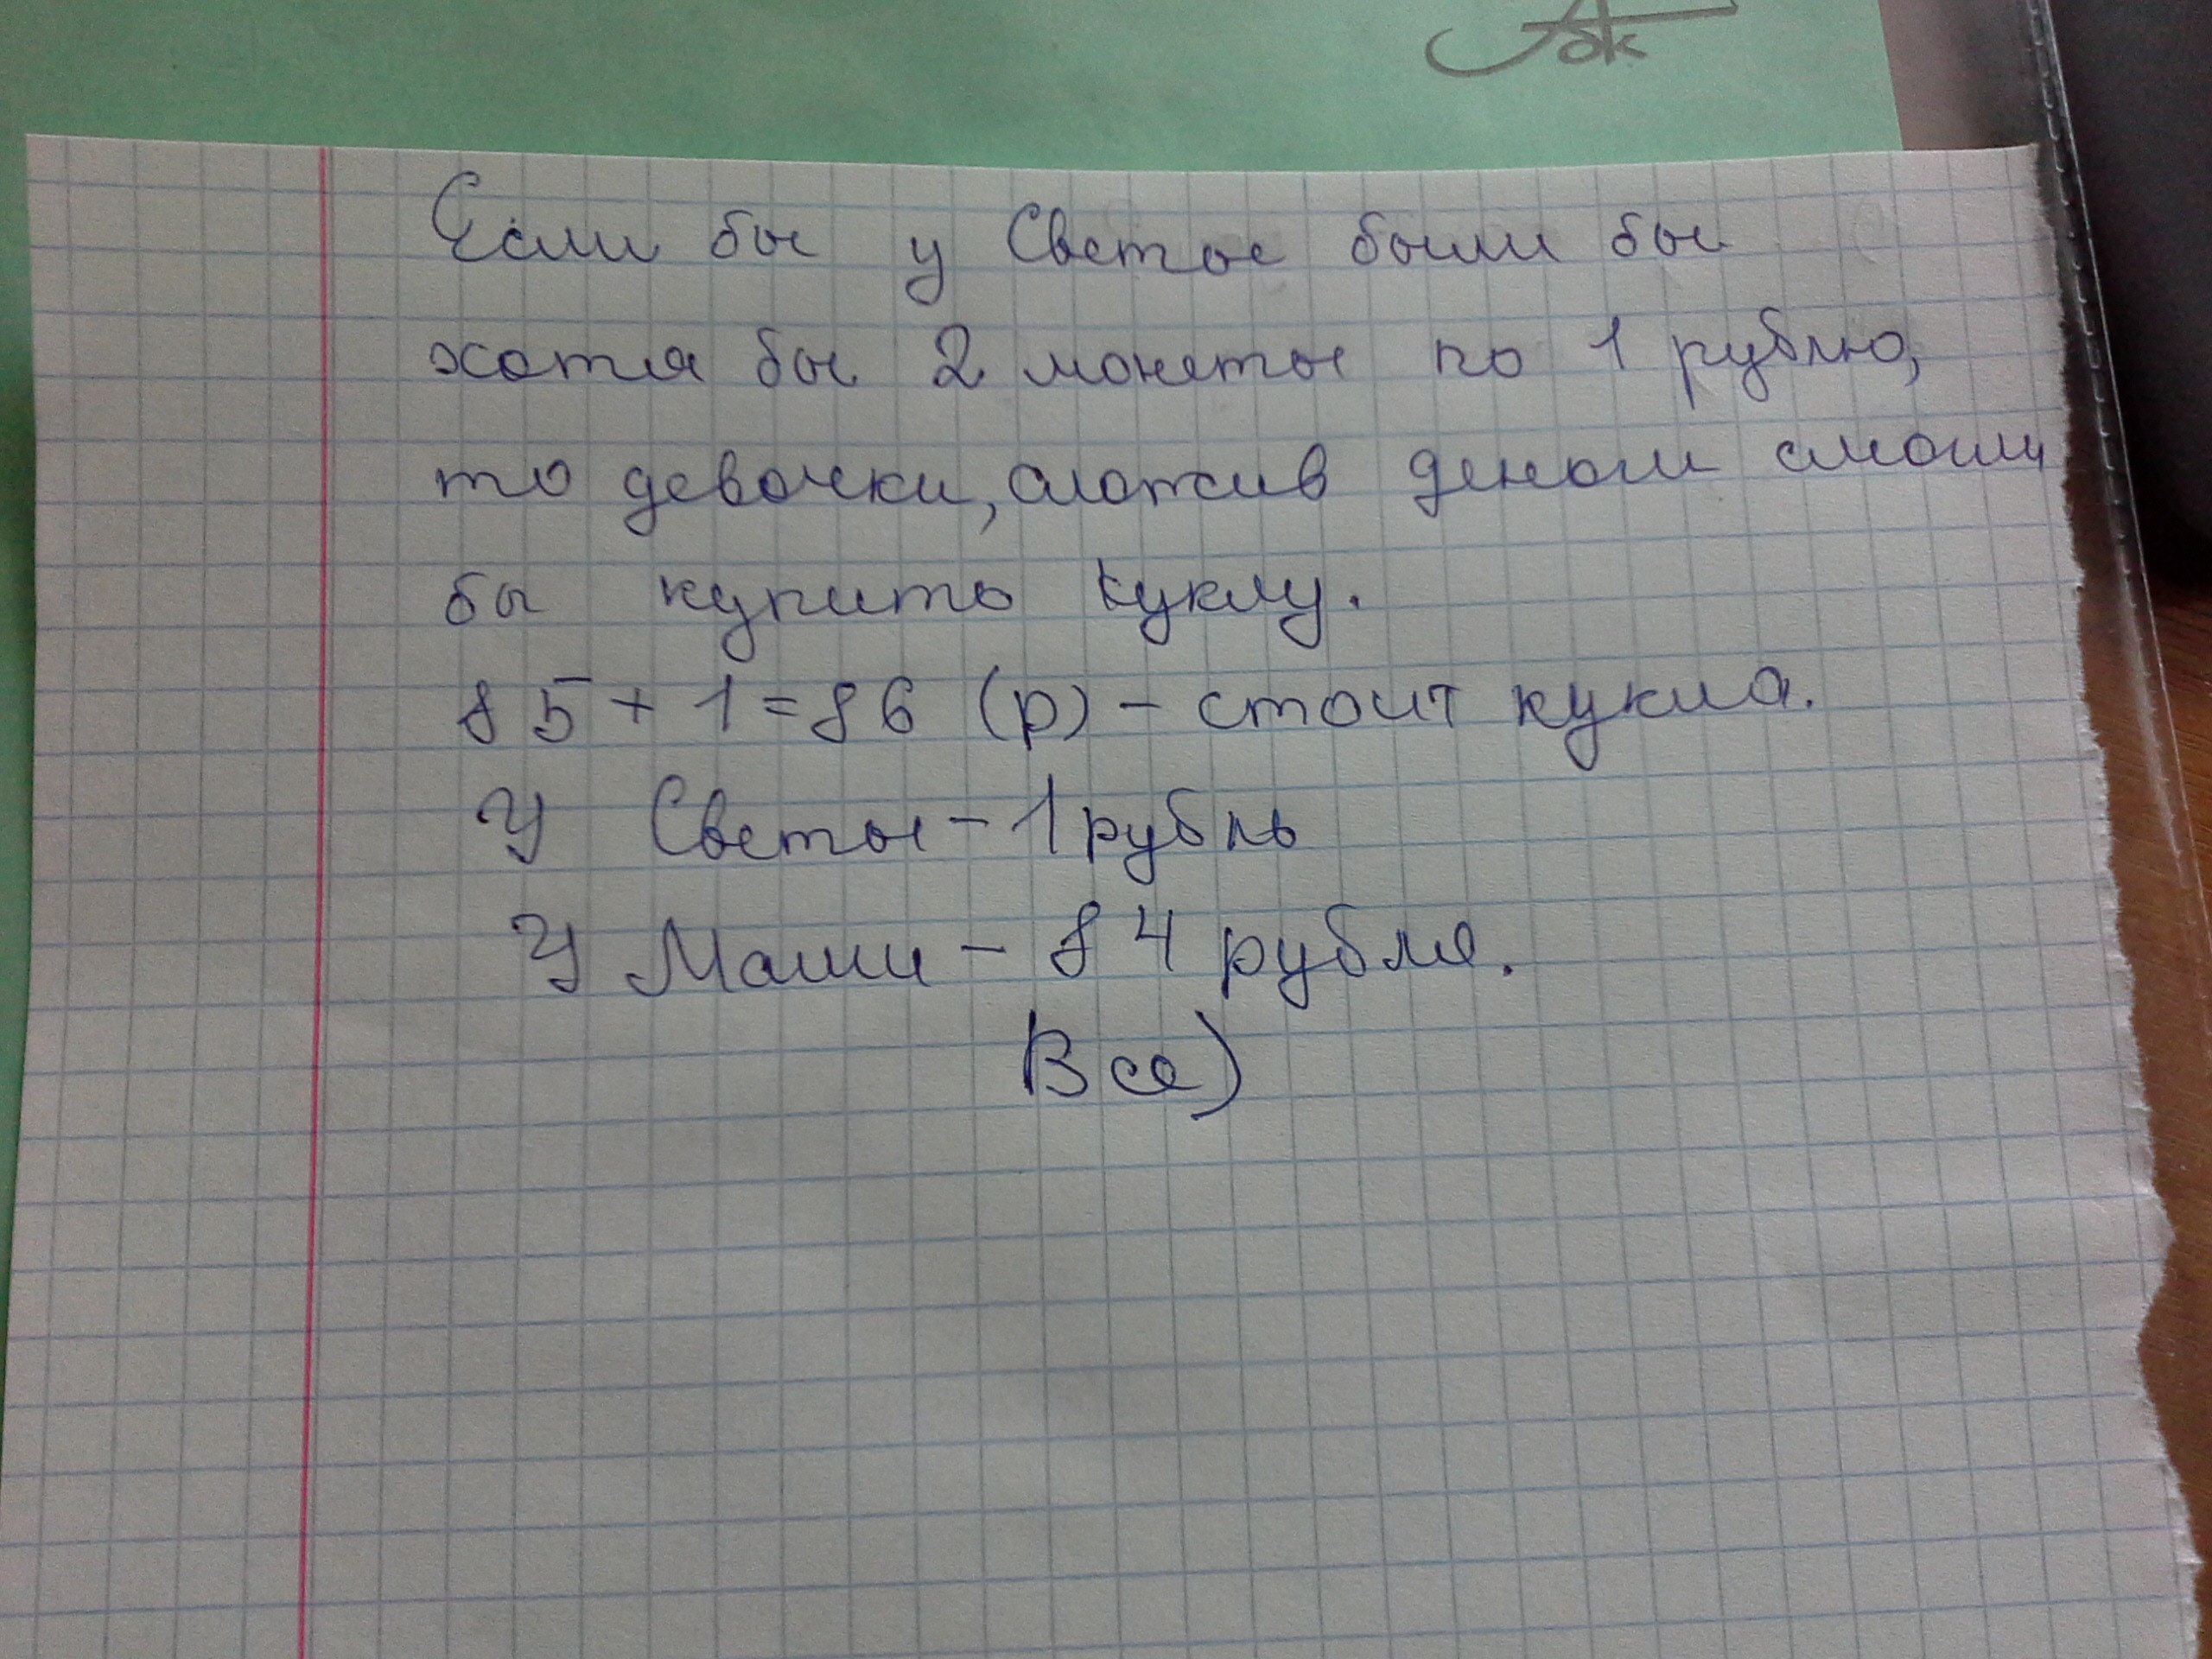 Если бы у Светы были бы
хотя бы 2 монеты по 1 рублю,
то девочки, сложив деньги смогли
бы купить куклу.
85 + 1 = 86 (р) - стоит кукла.
У Светы - 1 рубль
У Маши - 84 рубля.
Все)